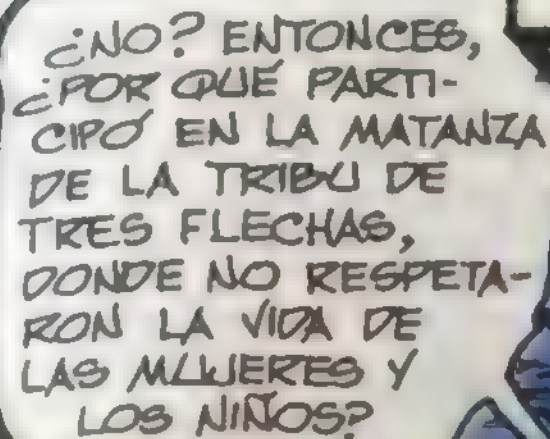 ¿NO? ENTONCES,
¿POR QUÉ PARTI-
CIPÓ EN LA MATANZA
DE LA TRIBU DE
TRES FLECHAS,
DONDE NO RESPETA-
RON LA VIDA DE
LAS MUJERES Y
LOS NIÑOS?